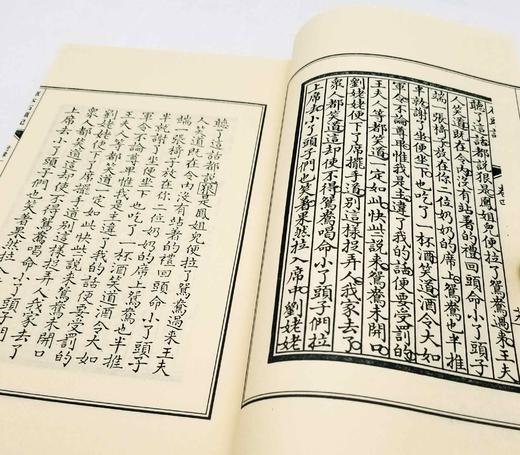 聽了這話都說狠是鳳姐兒便拉了鴛鴦過來王夫
人笑道既在令內沒有站着的禮回頭命小丫頭子
端一張椅子放在你二位奶奶的席上鴛鴦也半推
半就謝了坐便坐下也吃了一杯酒笑道酒令大如
軍令不論尊卑惟我是主違了我的話便要受罰的
王夫人等都笑道一定如此快些說來鴛鴦未開口
劉姥姥便下了席擺手道別這樣捉弄人我家去了
衆人都笑道這却使不得鴛鴦喝命小丫頭子們拉
上席去小丫頭子們也笑着果然拉入席中劉姥姥
聽了這話都說狠是鳳姐兒便拉了鴛鴦過來王夫
人笑道既在令內沒有站着的禮回頭命小丫頭子
端一張椅子放在你二位奶奶的席上鴛鴦也半推
半就謝了坐便坐下也吃了一杯酒笑道酒令大如
軍令不論尊卑惟我是主違了我的話便要受罰的
王夫人等都笑道一定如此快些說來鴛鴦未開口
劉姥姥便下了席擺手道別這樣捉弄人我家去了
衆人都笑道這却使不得鴛鴦喝命小丫頭子們
上席去小丫頭子們也笑着果然拉入